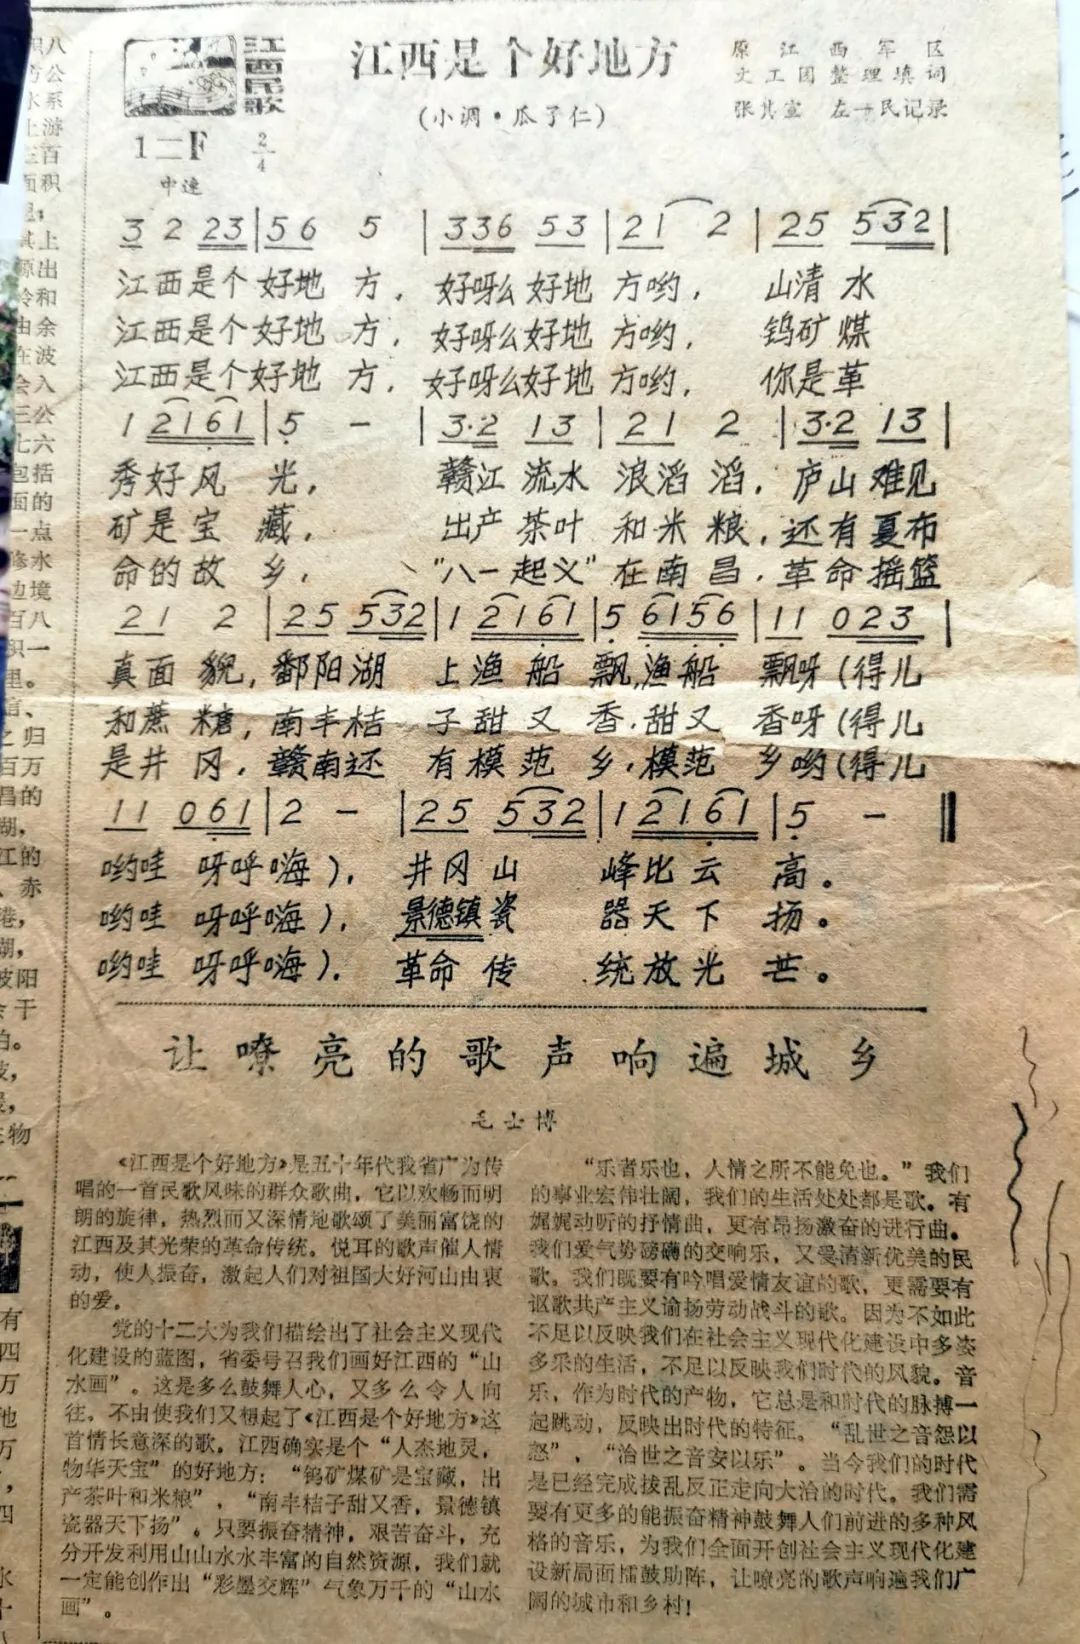 江西民歌
江西是个好地方
(小调·瓜子仁)
原江西军区
文工团整理填词
张其宣 左一民记录
1=F 2/4
中速
3 2 23 | 56 5 | 336 53 | 21 2 | 25 532 |
江西是个好地 方, 好呀么好地 方哟, 山清 水
江西是个好地 方, 好呀么好地 方哟, 钨矿 煤
江西是个好地 方, 好呀么好地 方哟, 你是 革
1 2161 | 5 – | 3·2 13 | 21 2 | 3·2 13 |
秀好 风 光, 赣江 流水 浪滔 滔, 庐山 难见
矿是 宝 藏, 出产 茶叶 和米 粮, 还有 夏布
命的 故 乡, “八一起义”在南 昌, 革命 摇篮
21 2 | 25 532 | 1 2161 | 5 6156 | 11 023 |
真面 貌, 鄱阳湖 上渔 船 飘,渔船 飘呀(得儿
和蔗 糖, 南丰桔 子甜 又 香,甜又 香呀(得儿
是井 冈, 赣南还 有模 范 乡,模范 乡哟(得儿
11 061 | 2 – | 25 532 | 1 2161 | 5 – ‖
哟哇 呀呼嗨), 井冈山 峰比云 高。
哟哇 呀呼嗨), 景德镇瓷 器天下 扬。
哟哇 呀呼嗨), 革命传 统放光 芒。
让嘹亮的歌声响遍城乡
毛士博
《江西是个好地方》是五十年代我省广为传
唱的一首民歌风味的群众歌曲,它以欢畅而明
朗的旋律,热烈而又深情地歌颂了美丽富饶的
江西及其光荣的革命传统。悦耳的歌声催人情
动,使人振奋,激起人们对祖国大好河山由衷
的爱。
党的十二大为我们描绘出了社会主义现代
化建设的蓝图,省委号召我们画好江西的“山
水画”。这是多么鼓舞人心,又多么令人向
往。不由使我们又想起了《江西是个好地方》这
首情长意深的歌。江西确实是个“人杰地灵,
物华天宝”的好地方:“钨矿煤矿是宝藏,出
产茶叶和米粮”,“南丰桔子甜又香,景德镇
瓷器天下扬”。只要振奋精神,艰苦奋斗,充
分开发利用山山水水丰富的自然资源,我们就
一定能创作出“彩墨交辉”气象万千的“山水
画”。
“乐者乐也,人情之所不能免也。”我们
的事业宏伟壮阔,我们的生活处处都是歌。有
娓娓动听的抒情曲,更有昂扬激奋的进行曲。
我们爱气势磅礴的交响乐,又爱清新优美的民
歌。我们既要有吟唱爱情友谊的歌,更需要有
讴歌共产主义谕扬劳动战斗的歌。因为不如此
不足以反映我们在社会主义现代化建设中多姿
多采的生活,不足以反映我们时代的风貌。音
乐,作为时代的产物,它总是和时代的脉搏一
起跳动,反映出时代的特征。“乱世之音怨以
怒”,“治世之音安以乐”。当今我们的时代
是已经完成拨乱反正走向大治的时代。我们需
要有更多的能振奋精神鼓舞人们前进的多种风
格的音乐,为我们全面开创社会主义现代化建
设新局面擂鼓助阵,让嘹亮的歌声响遍我们广
阔的城市和乡村!